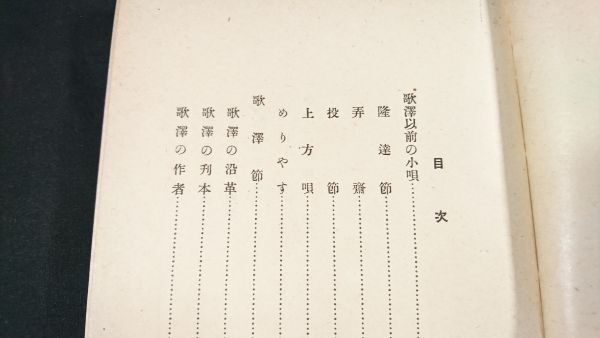 目次
歌澤以前の小唄
隆達節
弄齋
投節
上方唄
めりやす
歌澤節
歌澤の沿革
歌澤の刋本
歌澤の作者